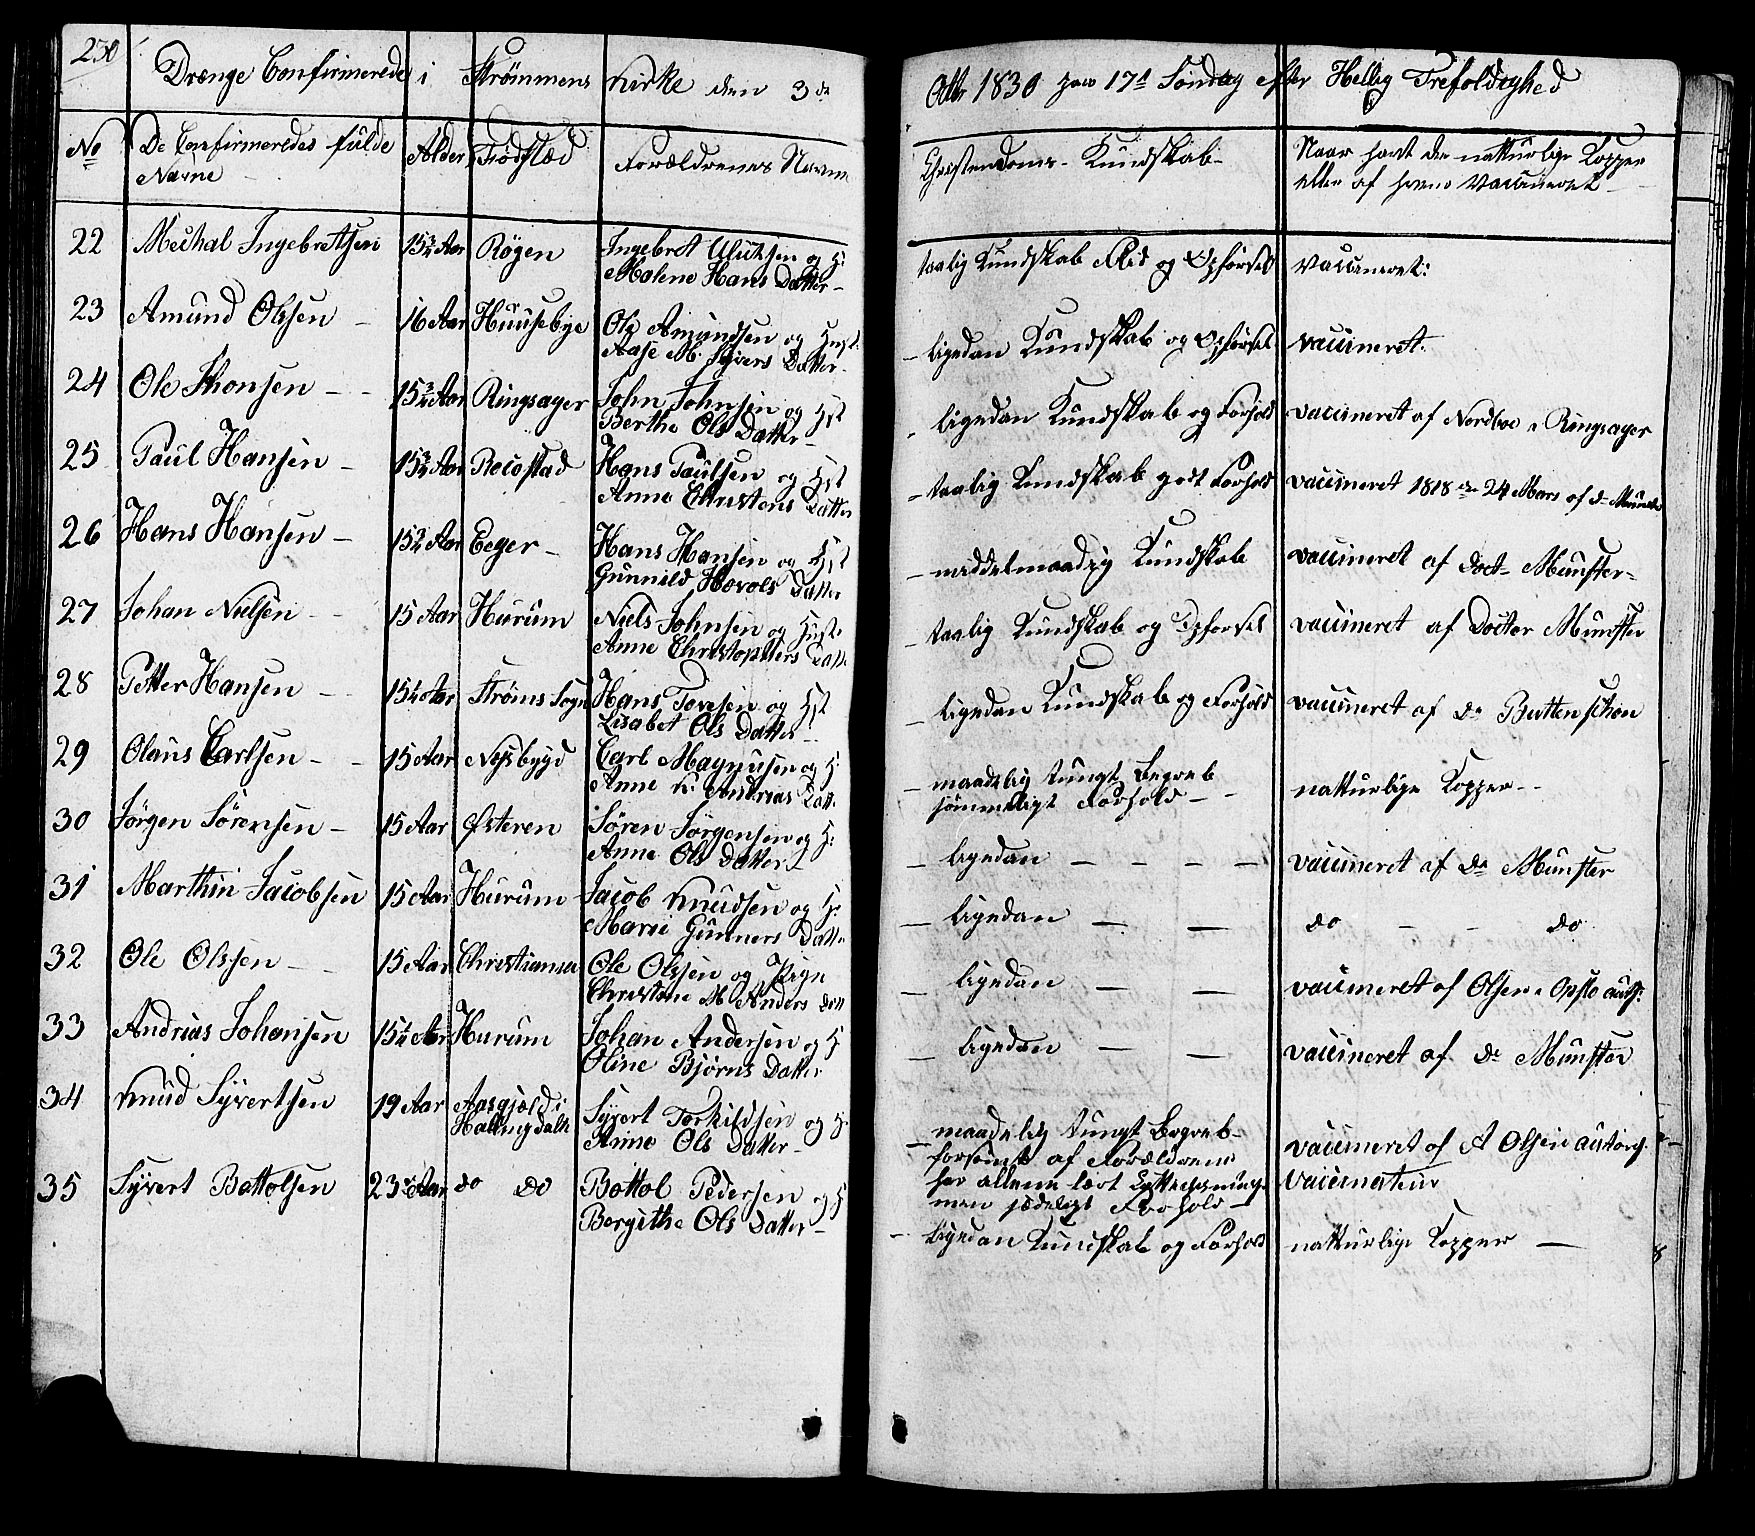 230
Drænge Confirmerede i Strømmens Kirke den 3de
Octbr 1830 paa 17de Søndag efter Hellig Trefoldighed
No
De Confirmeredes fulde
Navne
Alder
Fødsted
Forældrenes Navne
Christendoms-Kundskab
Naar havt de naturlige Kopper
eller af hvem Vaccineret
22 Michal Ingebretsen 15 3/4 Aar Røgen Ingebret Ulriksen og H:
Malene Hans Datter
taalig Kundskab Flid og Opførsel Vaccineret:
23 Amund Olssen 16 Aar Huusebye Ole Amundsen og Hust:
Aase M. Syvers Datter
ligedan Kundskab og Opførsel vaccineret.
24 Ole Jhonsen 15 3/4 Aar Ringsager John Johnsen og Hst
Berthe Ols Datter
ligedan Kundskab og Forhold vaccineret af Nordboe i Ringsager
25 Paul Hansen 15 3/4 Aar Hans Paulsen og Hst
Anne Christens Datter
taalig Kundskab godt Forhold vaccineret 1818 de 24 Mars af Dr Münster
26 Hans Hansen 15 3/4 Aar Eeger Hans Hansen og Hst
Gunnild Hovols Datter
middelmaadig Kundskab vaccineret af Doct. Münster
27 Johan Nielsen 15 Aar Hurum Niels Johnsen og Hust:
Anne Christophers Datt
taalig Kundskab og Opførsel vaccineret af Docter Münster
28 Petter Hansen 15 1/4 Aar Strøms Sogn Hans Toresen og Hst
Lisabet Ols Datter
ligedan Kundskab og Forhold vaccineret af Dr Buttenschøn
29 Olaus Carlsen 15 Aar Nessbygd Carl Magnusen og H:
Anne K. Andrias Datt:
maadelig tungt Begreb
sømmeligt Forhold naturlige Kopper
30 Jørgen Sørensen 15 Aar Østeren Søren Jørgensen og H:
Anne Ols Datter
ligedan vaccineret af Dr Münster
31 Marthin Jacobsen 15 Aar Hurum Jacob Knudsen og H:
Marie Gunners Datt:
ligedan do do
32 Ole Olssen 15 Aar Christiania Ole Olssen og Pige
Christine M Anders Datt
ligedan vaccineret af Olsen i Opslo auth:
33 Andrias Johansen 15 1/4 Aar Hurum Johan Andersen og H
Oline Bjørns Datter
ligedan vaccineret af Dr Münster
34 Knud Syvertsen 19 Aar i
Hallingdalen Syvert Torkildsen og H:
Anne Ols Datter
maadelig tungt Begreb
forsømt af Forældrene
har allene lært
men sædeligt Forhold
vaccineret af A Olsen autoris.
Vaccinateur
35 Syvert Bottolsen 23 Aar do do Bottol Pedersen og H
Bergithe Ols Datter
ligedan Kundskab og Forhold naturlige Kopper
8